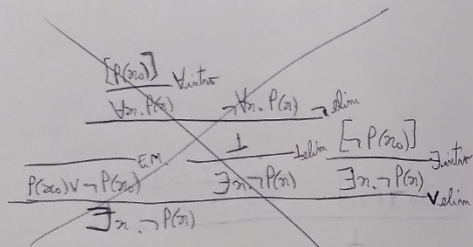 [P(x₀)] ∀intro
∀x. P(x) ¬∀x. P(x) ¬elim
EM ⊥ ⊥elim [¬P(x₀)] ∃intro
P(x₀) ∨ ¬P(x₀) ∃x. ¬P(x) ∃x. ¬P(x) ∨elim
∃x. ¬P(x)